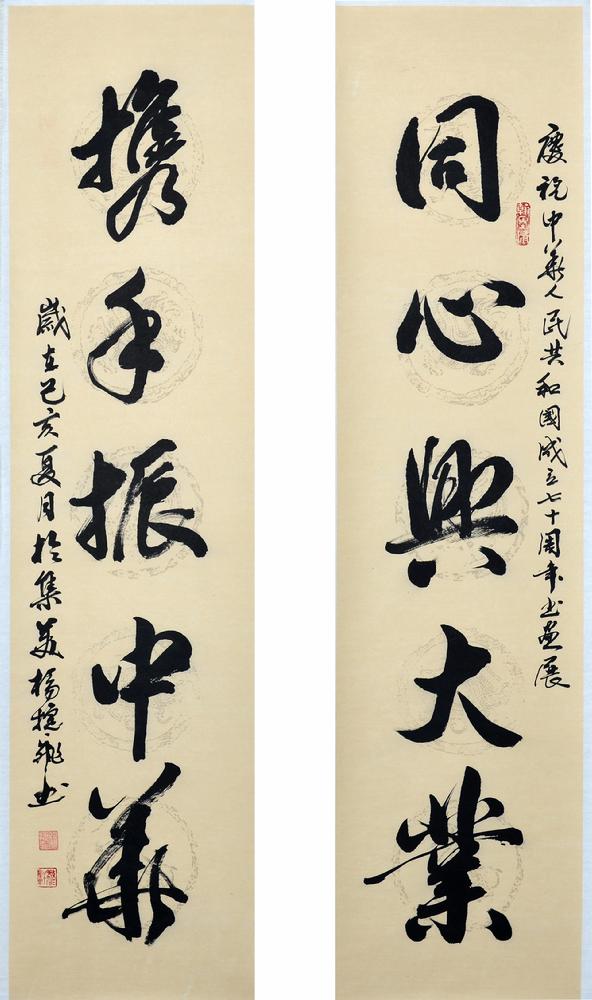 慶祝中華人民共和國成立七十周年书畫展
同心興大業
携手振中華
歲在己亥夏月於集美楊书